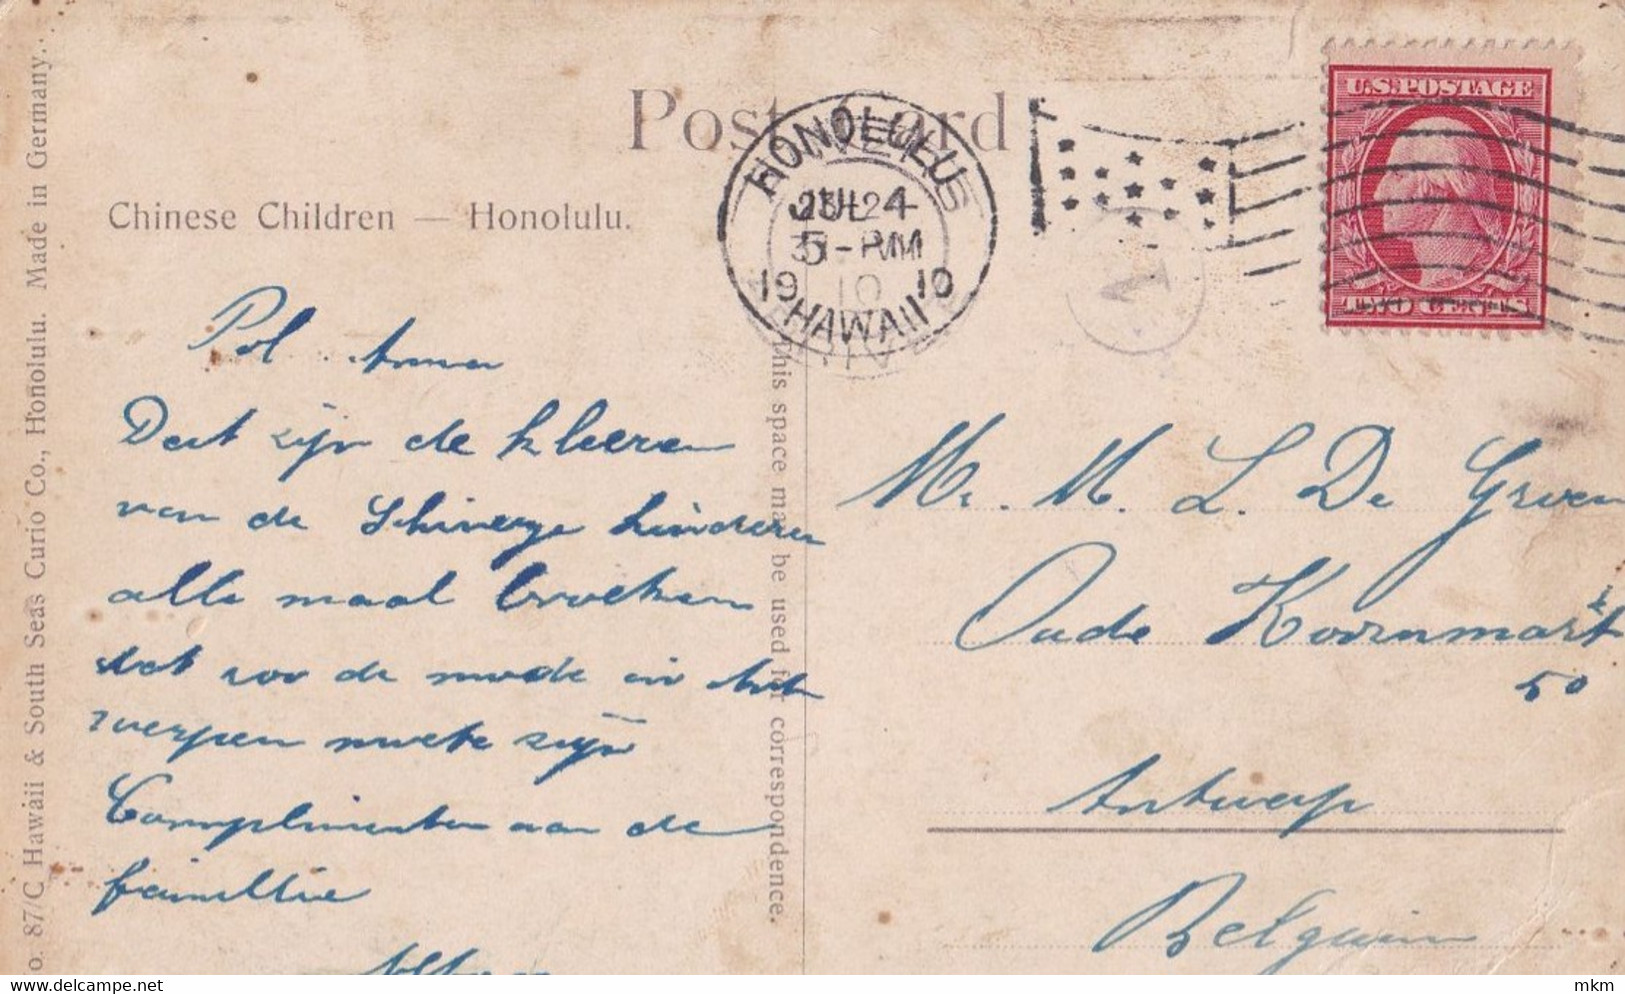 Post Card
U.S. POSTAGE
TWO CENTS
HONOLULU
5-PM
1910
HAWAII
1
Chinese Children — Honolulu.
Pol Anna
Dat zijn de kleeren
van de Schineesje kinderen
alle maal broeken
dat zoo de mode in Ant
werpen moete zijn
Complimenten aan de
famillie
Mr. M. L. De Groen
Oude Koornmarkt
50
Antwerp
Belguim
This space may be used for correspondence.
o. 87/C Hawaii & South Seas Curio Co., Honolulu. Made in Germany.
delcampe.net
mkm